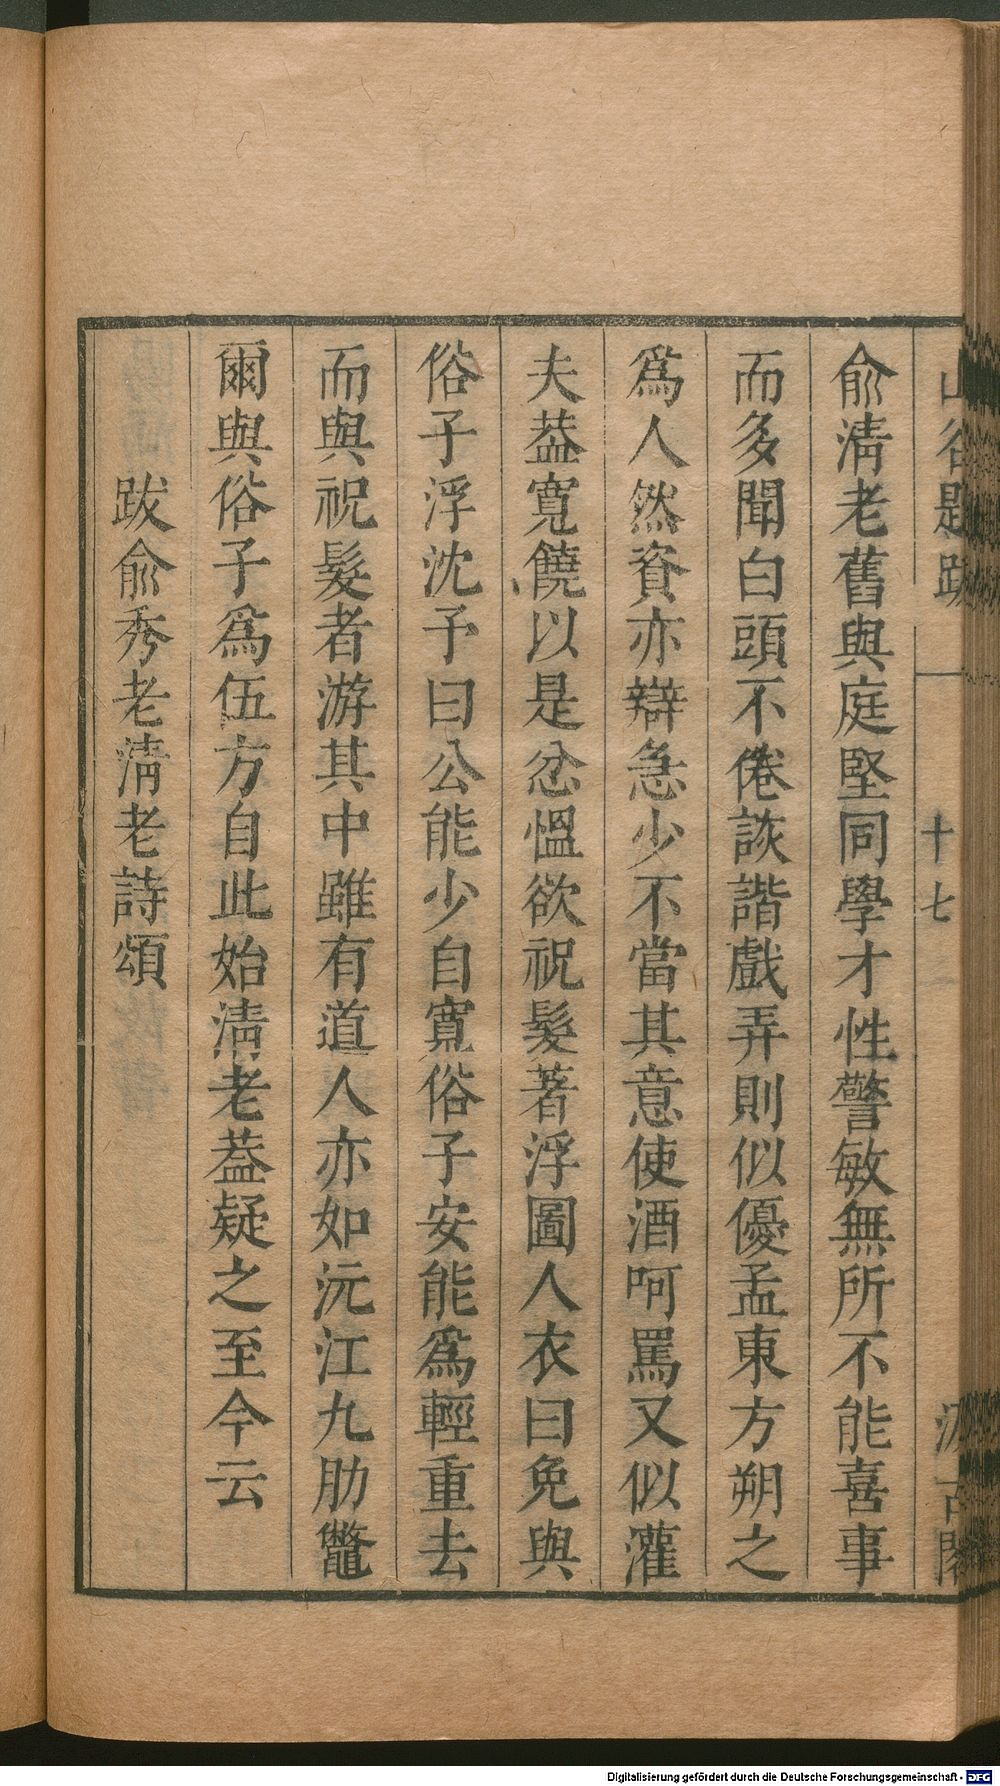 山谷題跋
十七
汲古閣
俞淸老舊與庭堅同學才性警敏無所不能喜事
而多聞白頭不倦詼諧戲弄則似優孟東方朔之
爲人然資亦辯急少不當其意使酒呵罵又似灌
夫葢寛饒以是忿慍欲祝髮著浮圖人衣曰免與
俗子浮沈予曰公能少自寛俗子安能爲輕重去
而與祝髮者游其中雖有道人亦如沅江九肋鼈
爾與俗子爲伍方自此始淸老葢疑之至今云
跋俞秀老淸老詩頌
Digitalisierung gefördert durch die Deutsche Forschungsgemeinschaft - DFG